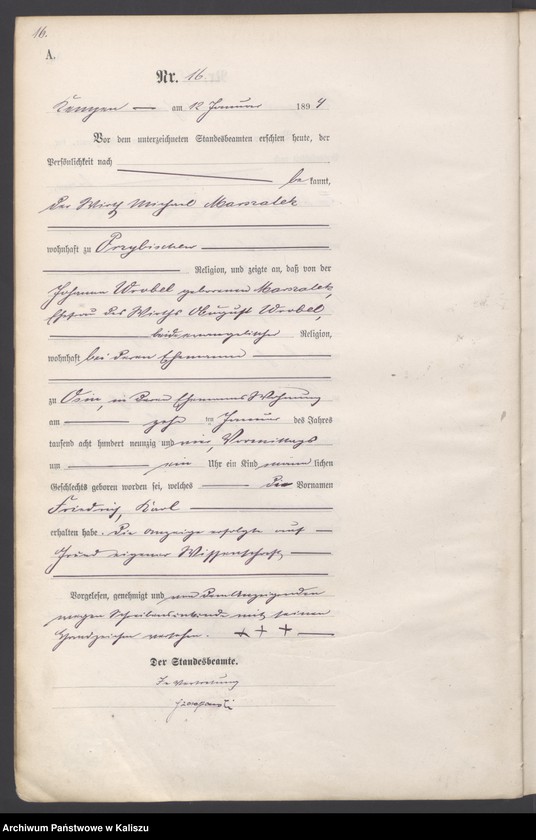 16.
A.
Nr. 16
Kempen — am 12 Januar 1894
Vor dem unterzeichneten Standesbeamten erschien heute, der
Persönlichkeit nach
bekannt,
der Wirth Michael Marszalek
wohnhaft zu Przybischew
Religion, und zeigte an, daß von der
Johanna Wrobel geborenen Marszalek,
Ehefrau des Wirths August Wrobel,
beide evangelischer Religion,
wohnhaft bei deren Ehemanne
zu Osin, in deren Ehemanns Wohnung
am zehnten Januar des Jahres
tausend acht hundert neunzig und vier, Vormittags
um ein Uhr ein Kind männlichen
Geschlechts geboren worden sei, welches die Vornamen
Friedrich, Karl
erhalten habe. Die Anzeige erfolgte auf
Grund eigener Wissenschaft,
Vorgelesen, genehmigt und von dem Anzeigenden
wegen Schreibensunkunde mit seinem
Handzeichen versehen. + + +
Der Standesbeamte.
In Vertretung
Archiwum Państwowe w Kaliszu